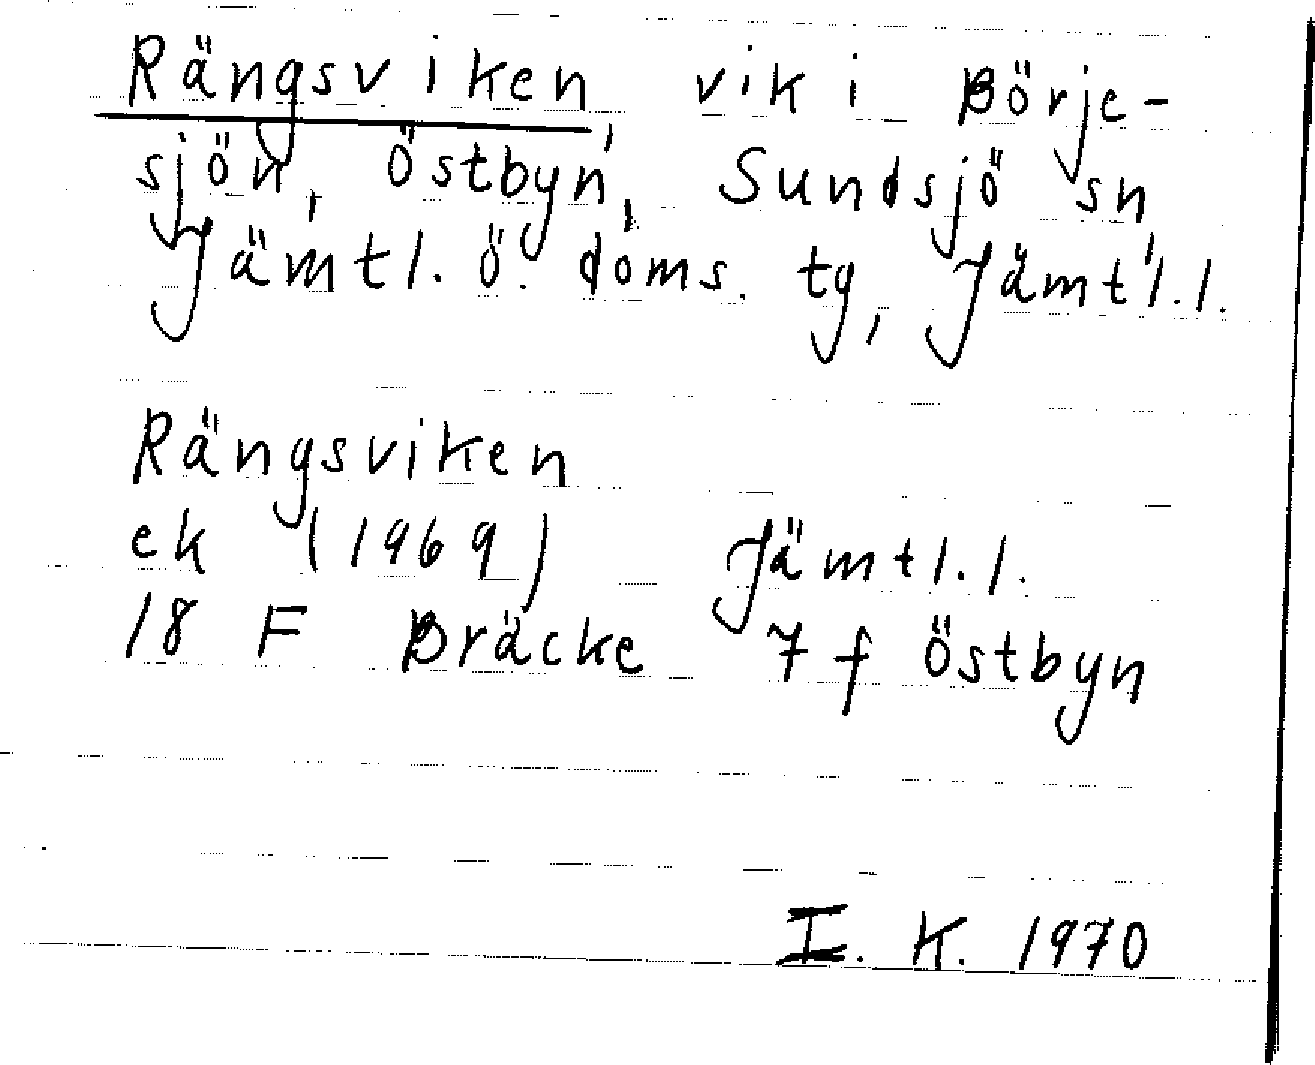 Rängsviken, vik i Börje-
sjön, Östbyn, Sundsjö sn
Jämtl. ö. doms. tg, Jämtl. l.
Rängsviken
ek (1969) Jämtl. l.
18 F Bräcke 7 f Östbyn
I. K. 1970